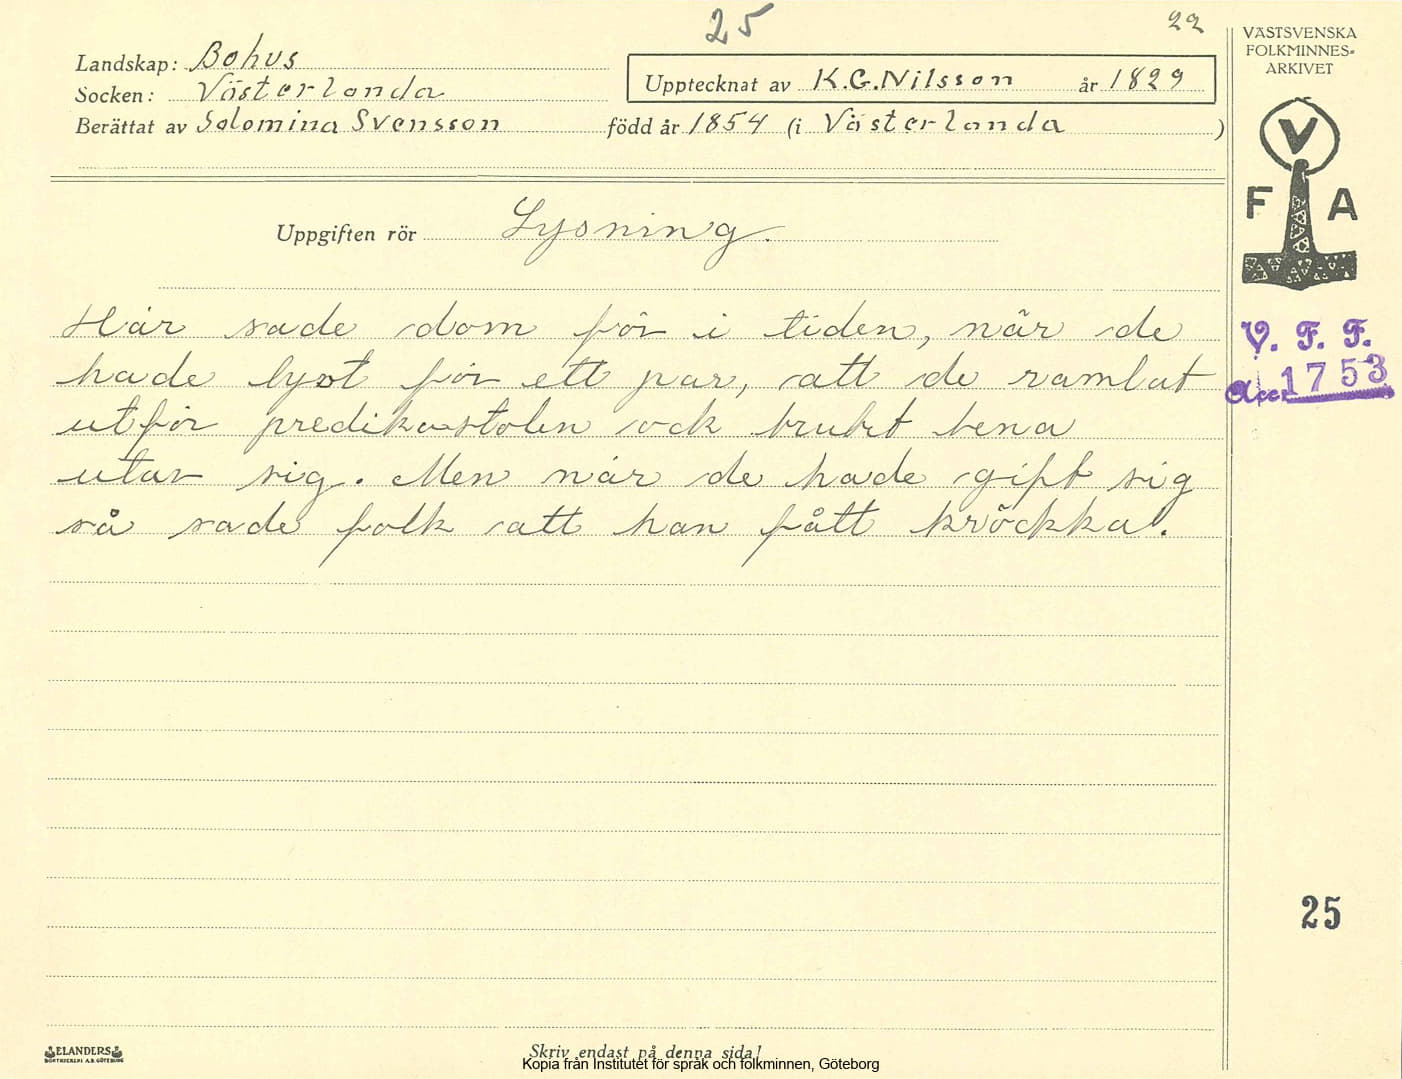 25
22
Landskap: Bohus
Socken: Västerlanda
Upptecknat av K.G.Nilsson år 1829
Berättat av Solomina Svensson född år 1854 (i Västerlanda)
Uppgiften rör Lysning.
Här sade dom för i tiden, när de
hade lyst för ett par, att de ramlat
utför predikostolen ock brukt bena
utav sig. Men när de hade gift sig
så sade folk att han fått kröckka.
VÄSTSVENSKA
FOLKMINNES-
ARKIVET
V
F A
V. F. F.
Acc. 1753
25
ELANDERS
BOKTRYCKERI A.B. GÖTEBORG
Skriv endast på denna sida!
Kopia från Institutet för språk och folkminnen, Göteborg